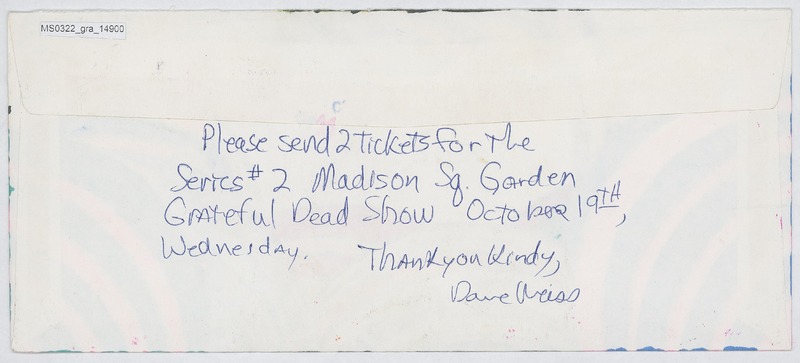 MS0322_gra_14900
Please send 2 tickets for the
Series # 2 Madison Sq. Garden
Grateful Dead Show October 19TH,
Wednesday. Thank you kindy,
Dave Weiss